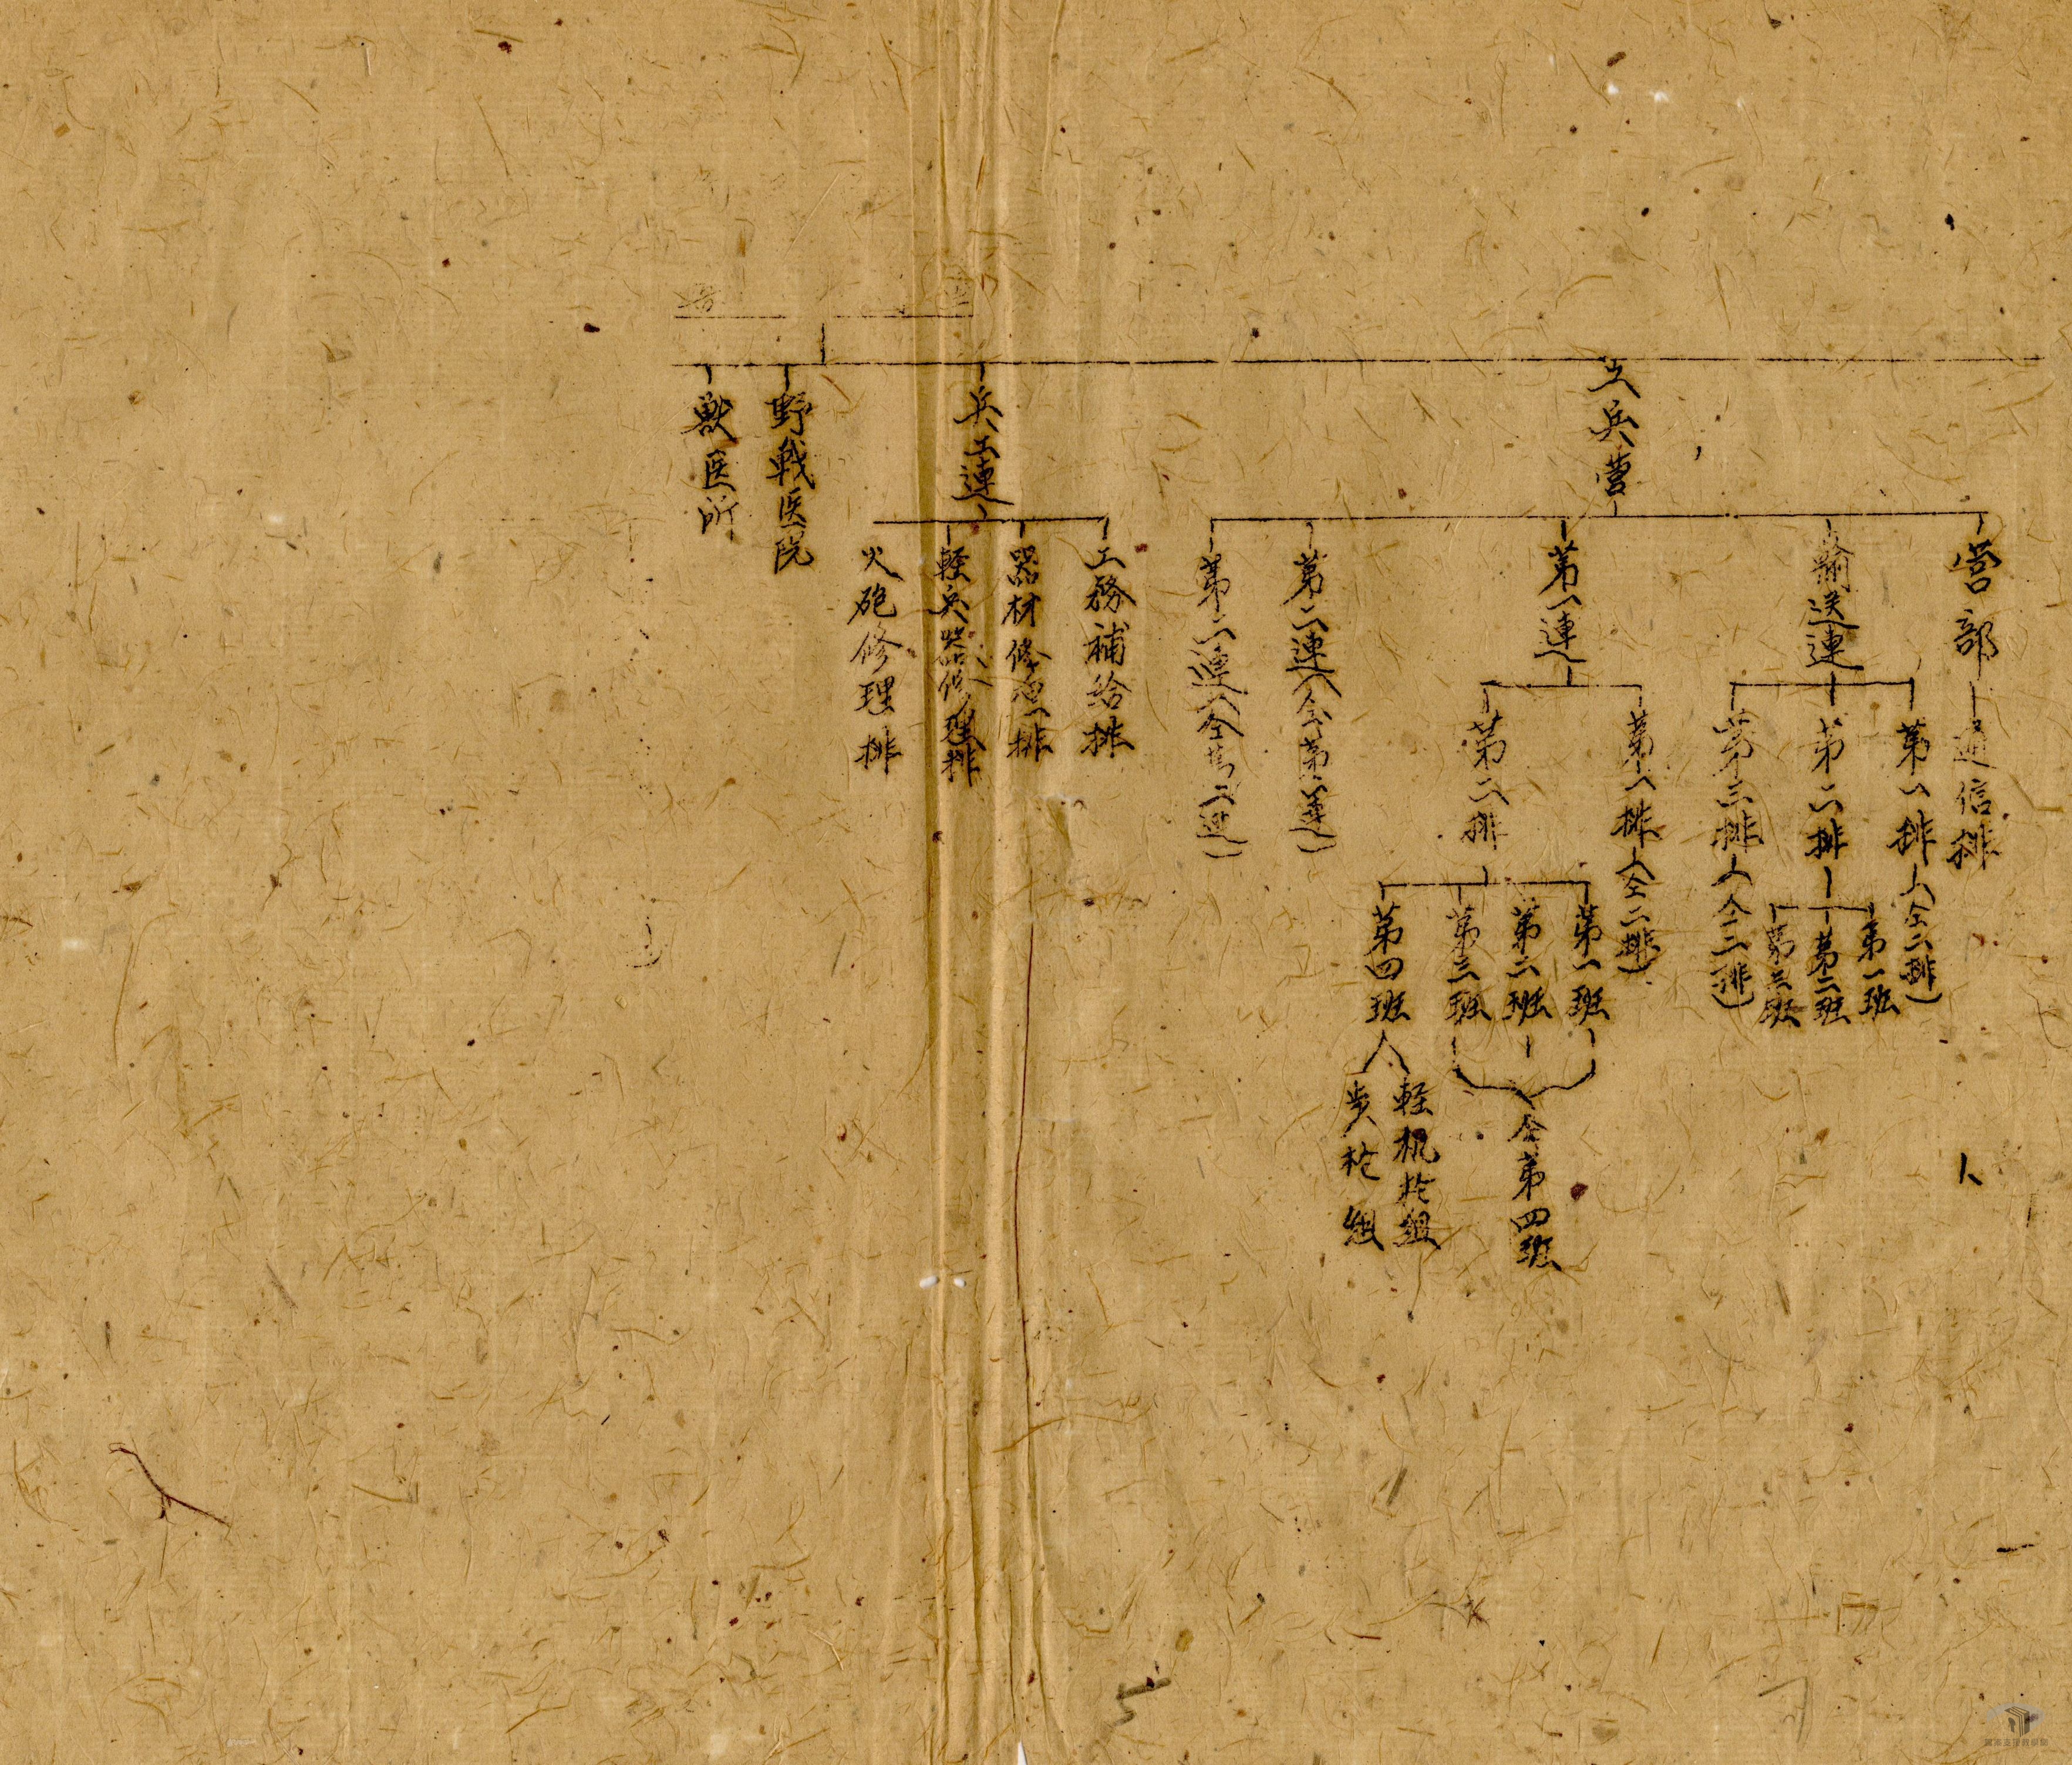 工兵营
营部
通信排
輸送連
第一排（仝二排）
第二排
第一班
第二班
第三班
第三排（仝二排）
第一連
第一排（仝二排）
第二排
第一班
第二班
第三班
仝第四班
第四班
軽机枪组
步枪组
第二連（仝第一連）
兵工連
工務補给排
器材修理排
軽兵器修理排
火砲修理排
野戦医院
獣医所